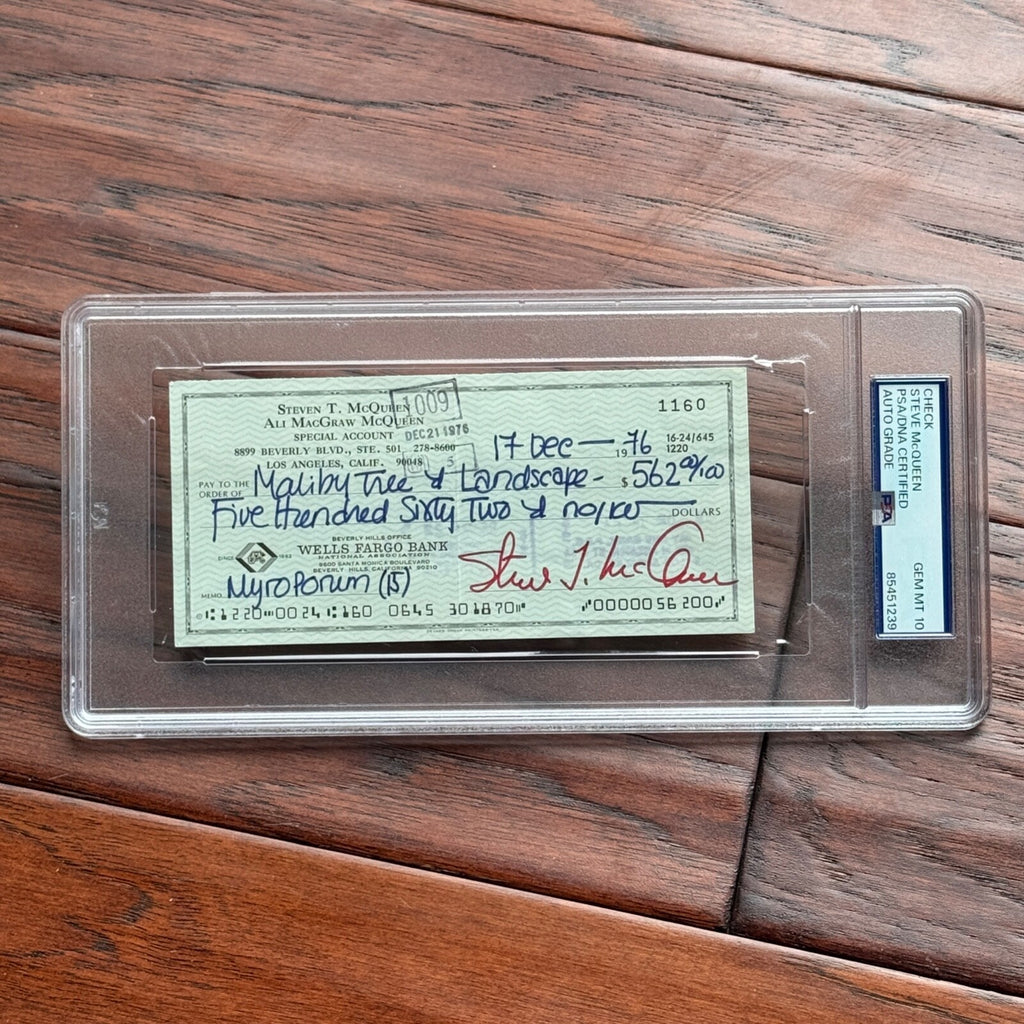 STEVEN T. MCQUEEN
ALI MACGRAW MCQUEEN
SPECIAL ACCOUNT
8899 BEVERLY BLVD., STE. 501 278-8600
LOS ANGELES, CALIF. 90048
1009
DEC 21 1976
1160
17 Dec — 1976
16-24/645
1220
PAY TO THE ORDER OF Maliby Tree & Landscape - $ 562 00/100
Five Hundred Sixty Two & no/100 DOLLARS
BEVERLY HILLS OFFICE
SINCE 1852
WELLS FARGO BANK
NATIONAL ASSOCIATION
9600 SANTA MONICA BOULEVARD
BEVERLY HILLS, CALIFORNIA 90210
MEMO Myroporum (15)
Steve T. McQueen
⑆1220⑉0024⑆160 0645 301870⑈ ⑈0000056200⑈
CHECK
STEVE McQUEEN
PSA/DNA CERTIFIED
AUTO GRADE
GEM MT 10
PSA
85451239